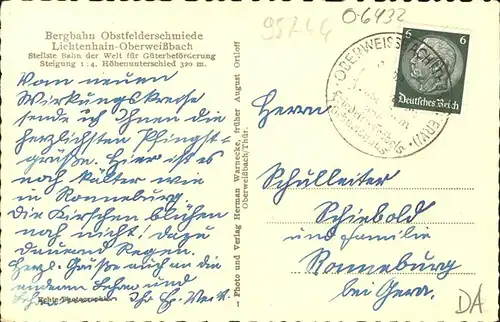 957-44
06432
Bergbahn Obstfelderschmiede
Lichtenhain-Oberweißbach
Steilste Bahn der Welt für Güterbeförderung
Steigung 1 : 4, Höhenunterschied 320 m.
Vom neuen
Wirkungskreise
sende ich Ihnen die
herzlichsten Pfingst-
grüße. Hier ist es
noch kälter wie
in Ronneburg
Die Kirschen blühen
noch nicht! dazu
dauernd Regen.
Herzl. Grüße auch an die
anderen Lehrer und
Echte Photographie
Ihr Fr.
– Photo und Verlag Herman Warnecke, früher August Ortloff
Oberweißbach/Thür.
OBERWEISSBACH
6 6
Deutsches Reich
Schulleiter
Schiebold
und Familie
Ronneburg
bei Gera.
DA